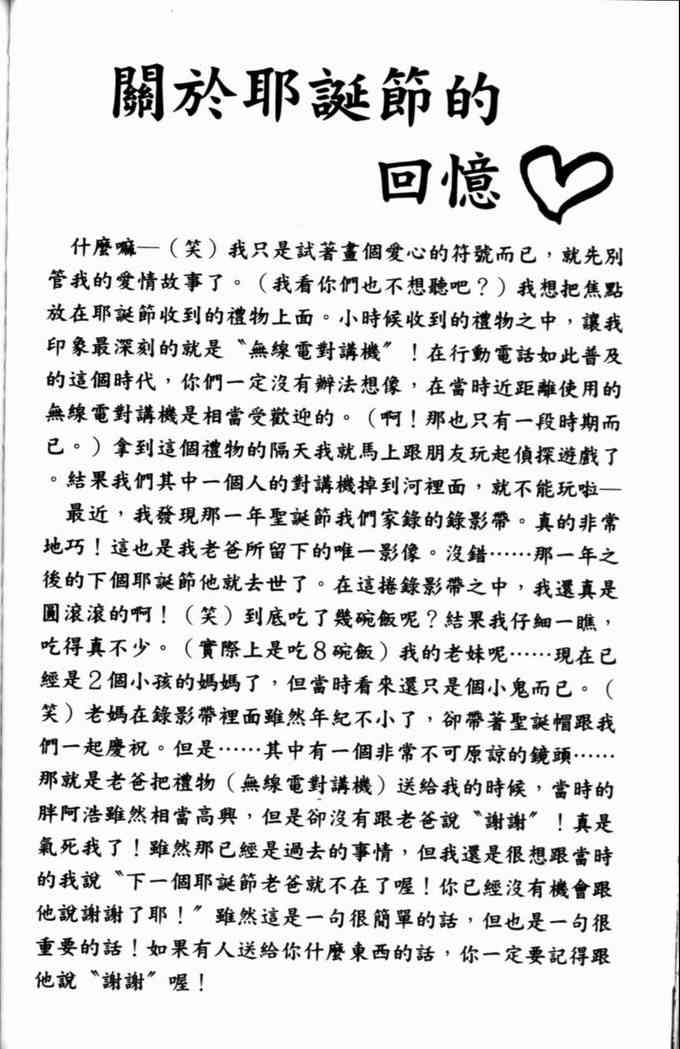 關於耶誕節的
回憶
什麼嘛—（笑）我只是試著畫個愛心的符號而已，就先別
管我的愛情故事了。（我看你們也不想聽吧？）我想把焦點
放在耶誕節收到的禮物上面。小時候收到的禮物之中，讓我
印象最深刻的就是〝無線電對講機〞！在行動電話如此普及
的這個時代，你們一定沒有辦法想像，在當時近距離使用的
無線電對講機是相當受歡迎的。（啊！那也只有一段時期而
已。）拿到這個禮物的隔天我就馬上跟朋友玩起偵探遊戲了
。結果我們其中一個人的對講機掉到河裡面，就不能玩啦—
最近，我發現那一年聖誕節我們家錄的錄影帶。真的非常
地巧！這也是我老爸所留下的唯一影像。沒錯……那一年之
後的下個耶誕節他就去世了。在這捲錄影帶之中，我還真是
圓滾滾的啊！（笑）到底吃了幾碗飯呢？結果我仔細一瞧，
吃得真不少。（實際上是吃8碗飯）我的老妹呢……現在已
經是2個小孩的媽媽了，但當時看來還只是個小鬼而已。（
笑）老媽在錄影帶裡面雖然年紀不小了，卻帶著聖誕帽跟我
們一起慶祝。但是……其中有一個非常不可原諒的鏡頭……
那就是老爸把禮物（無線電對講機）送給我的時候，當時的
胖阿浩雖然相當高興，但是卻沒有跟老爸說〝謝謝〞！真是
氣死我了！雖然那已經是過去的事情，但我還是很想跟當時
的我說〝下一個耶誕節老爸就不在了喔！你已經沒有機會跟
他說謝謝了耶！〞雖然這是一句很簡單的話，但也是一句很
重要的話！如果有人送給你什麼東西的話，你一定要記得跟
他說〝謝謝〞喔！